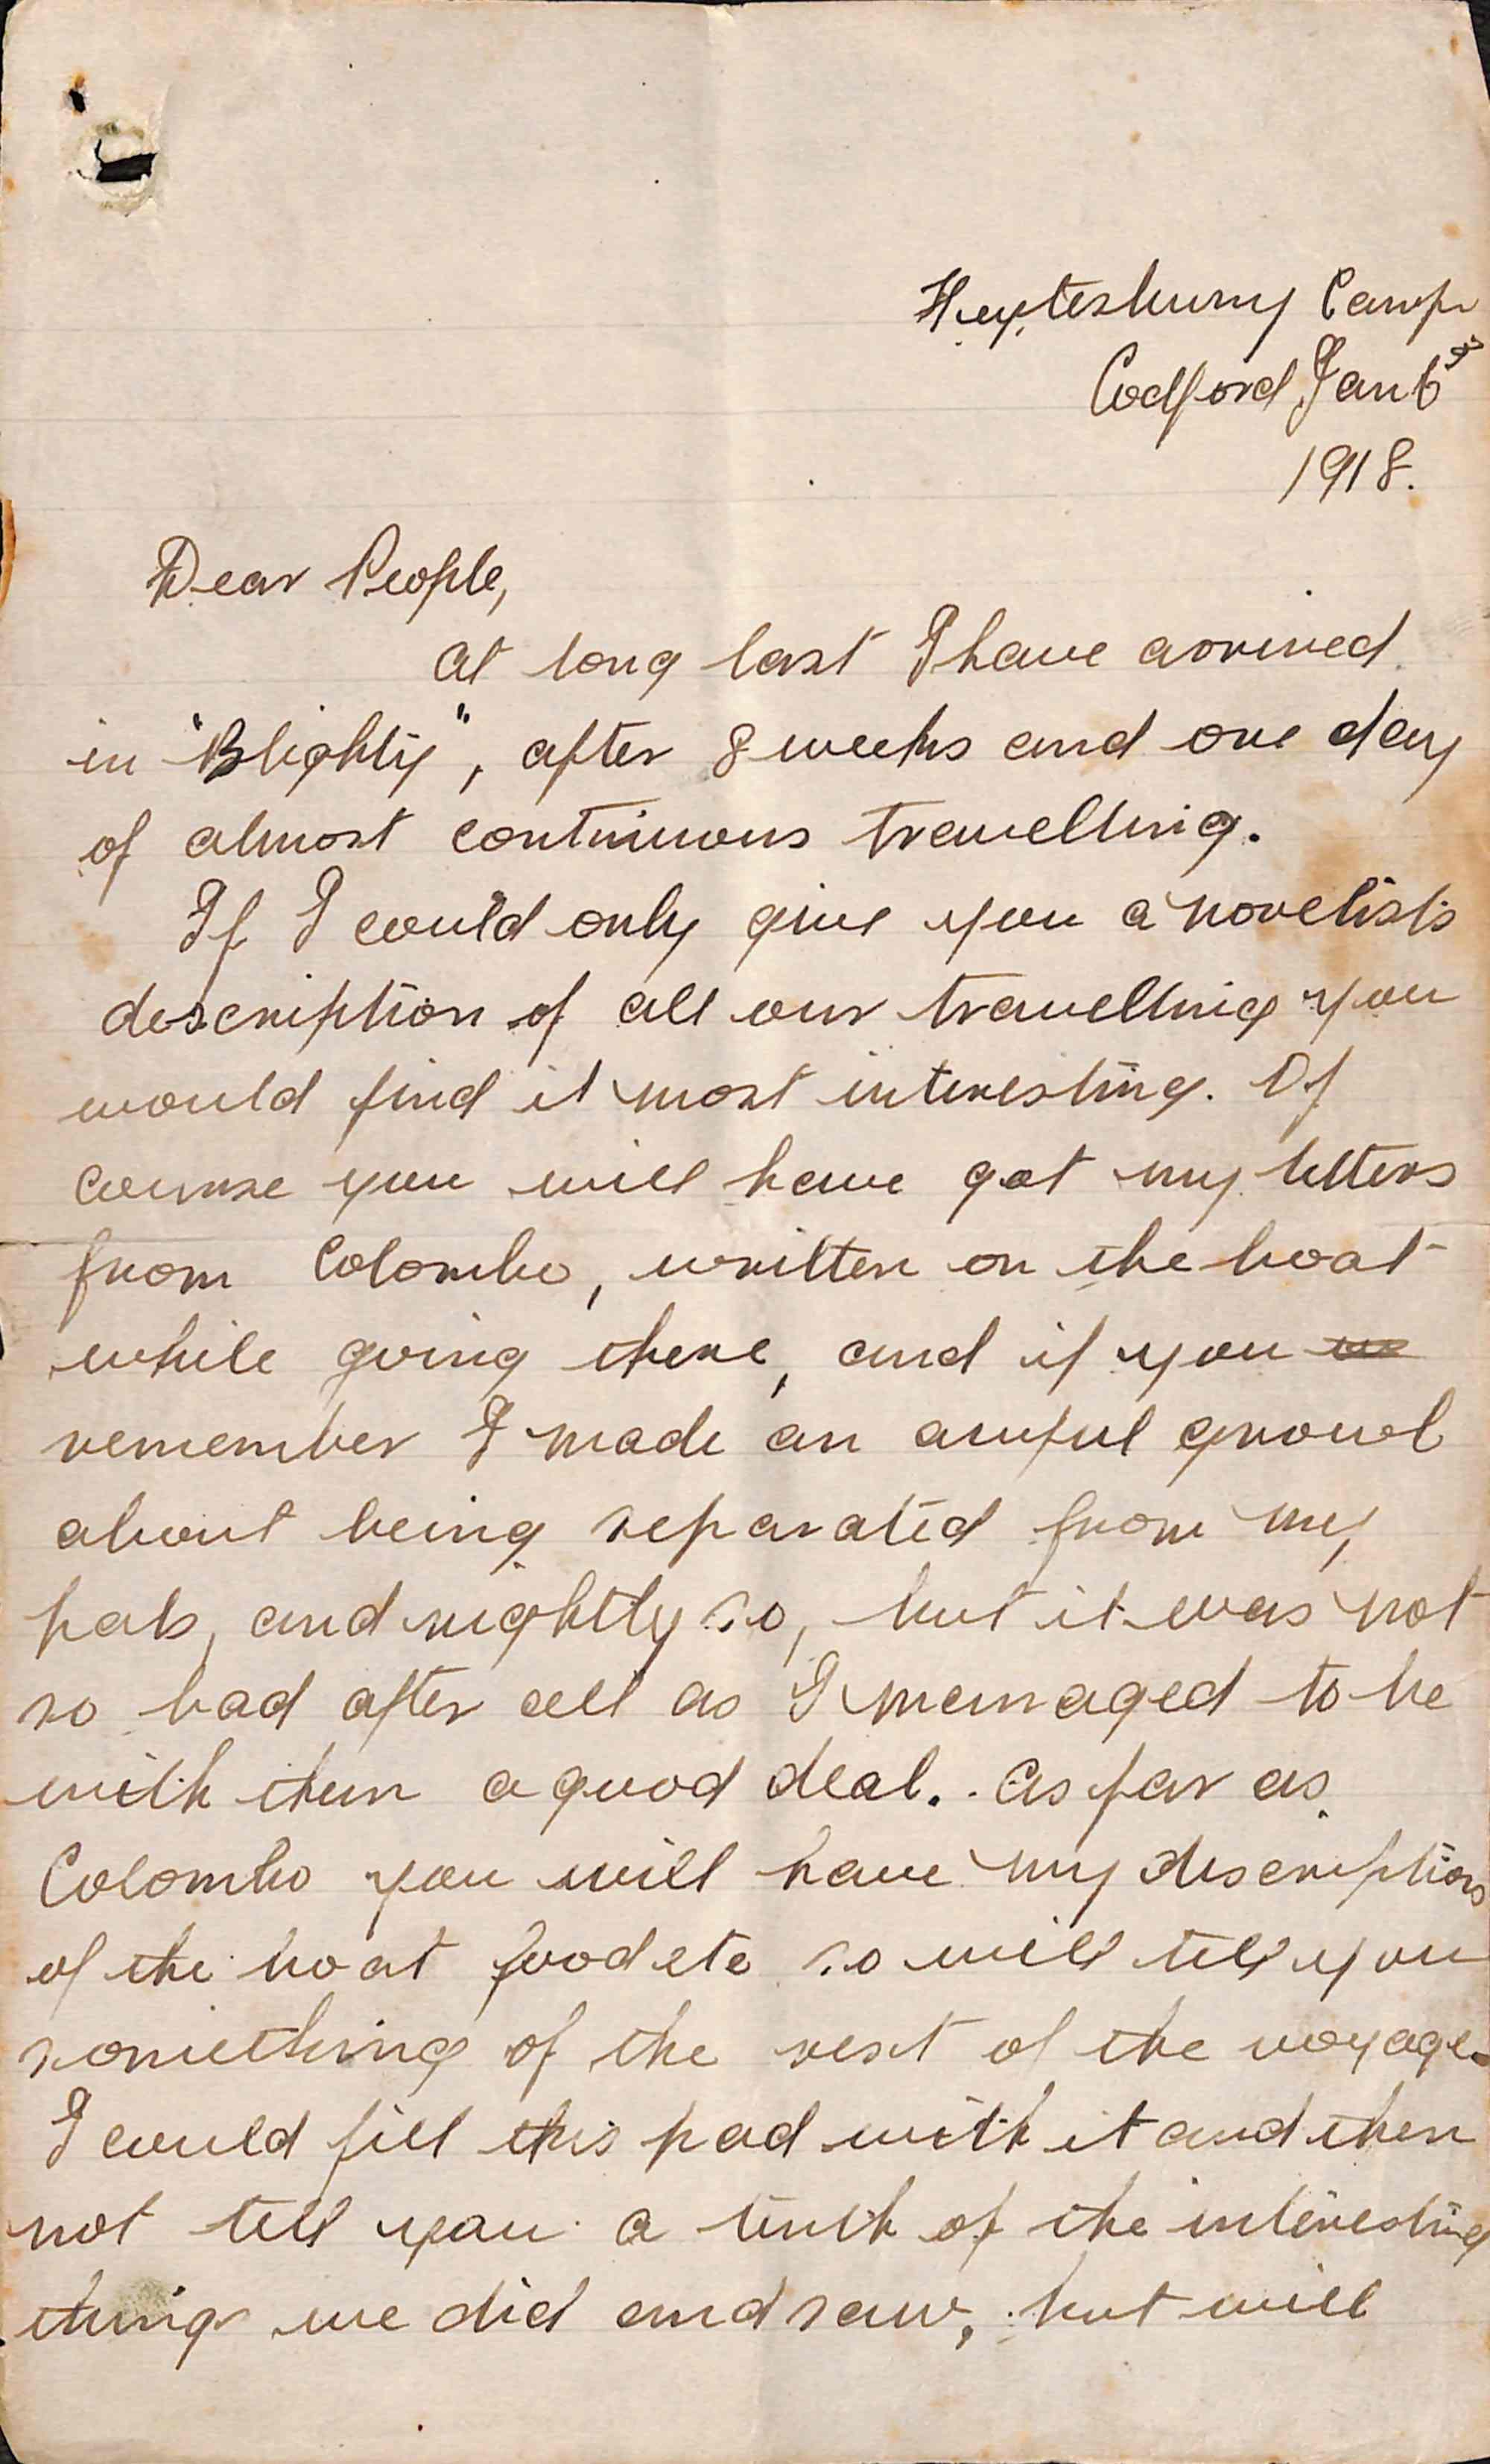 Heytesbury Camp
Codford Jan 6th
1918.
Dear People,
At long last I have arrived
in "Blighty", after 8 weeks and one day
of almost continuous travelling.
If I could only give you a novelists
description of all our travelling you
would find it most interesting. Of
course you will have got my letters
from Colombo, written on the boat
while going there, and if you
remember I made an awful growl
about being separated from my
pals, and rightly so, but it was not
so bad after all as I managed to be
with them a good deal. As far as
Colombo you will have my description
of the boat food etc so will tell you
something of the rest of the voyage.
I could fill this pad with it and then
not tell you a tenth of the interesting
things we did and saw, but will